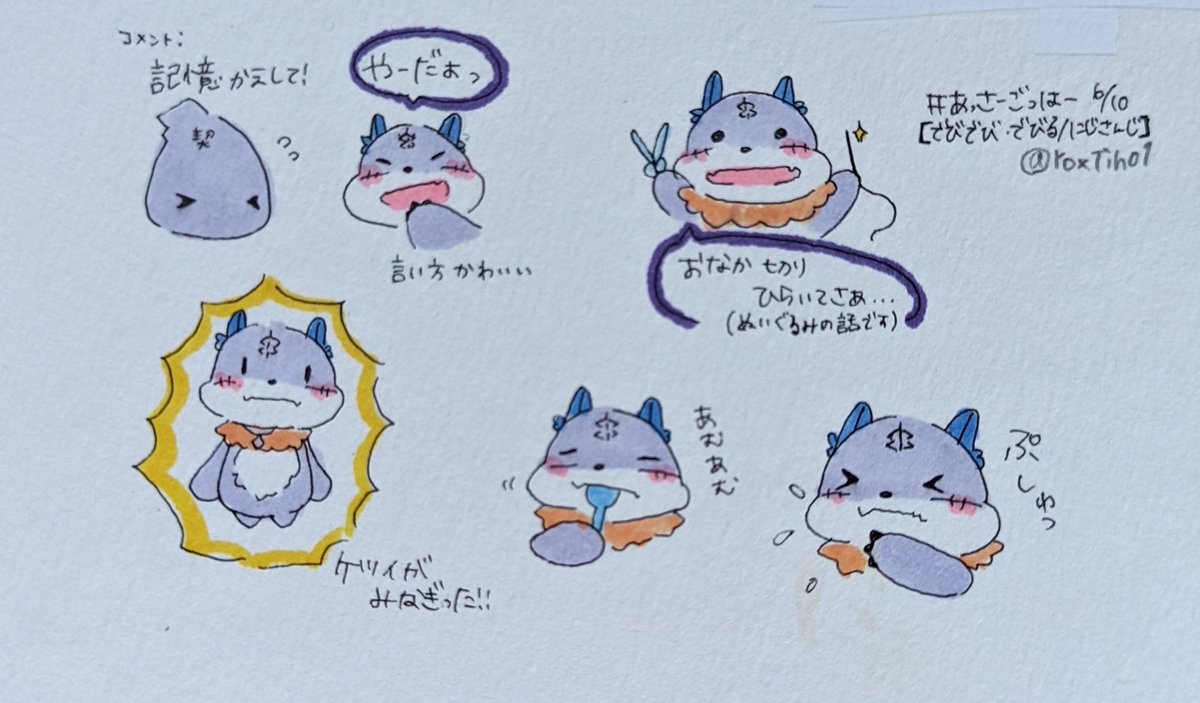 コメント:
記憶かえして!
契
やーだぁっ
言い方かわいい
#あっさーごっはー 6/10
[でびでび・でびる/にじさんじ]
@roxTiho1
おなか切り
ひらいてさぁ...
(ぬいぐるみの話です)
ケツイが
みなぎった!!
あむあむ
ぷしゅっ